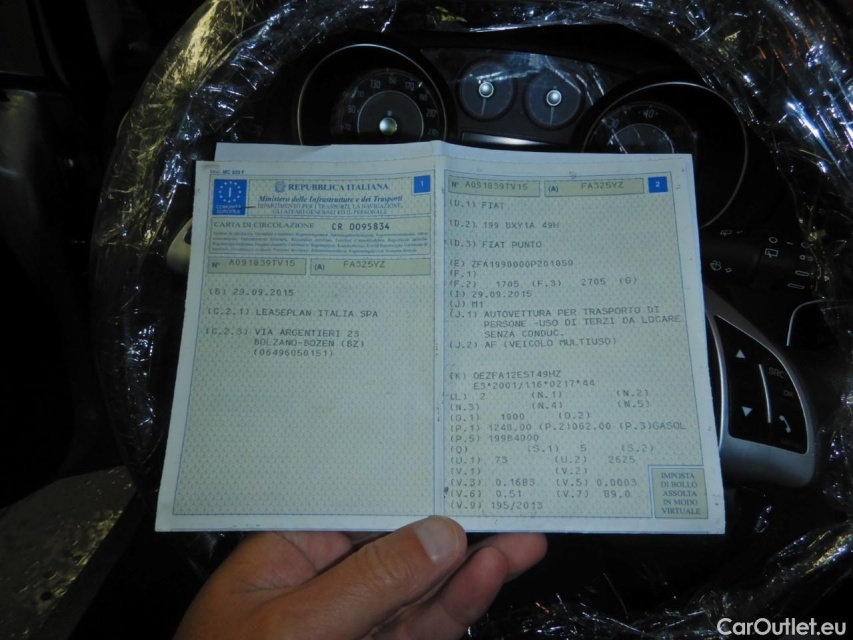 REPUBBLICA ITALIANA
1
Ministero delle Infrastrutture e dei Trasporti
DIPARTIMENTO PER I TRASPORTI, LA NAVIGAZIONE,
GLI AFFARI GENERALI ED IL PERSONALE
CARTA DI CIRCOLAZIONE CR 0095834
N° A091839TV15 (A) FA325YZ
(B) 29.09.2015
(C.2.1) LEASEPLAN ITALIA SPA
(C.2.3) VIA ARGENTIERI 23
BOLZANO-BOZEN (BZ)
(06496050151)
N° A091839TV15 (A) FA325YZ 2
(D.1) FIAT
(D.2) 199 BXY1A 49H
(D.3) FIAT PUNTO
(E) ZFA1990000P201050
(F.1)
(F.2) 1705 (F.3) 2705 (G)
(I) 29.09.2015
(J) M1
(J.1) AUTOVETTURA PER TRASPORTO DI
PERSONE -USO DI TERZI DA LOCARE
SENZA CONDUC.
(J.2) AF (VEICOLO MULTIUSO)
(K) OEZFA12EST49HZ
E3*2001/116*0217*44
(L) 2 (N.1) (N.2)
(N.3) (N.4) (N.5)
(O.1) 1000 (O.2)
(P.1) 1248.00 (P.2)062.00 (P.3)GASOL
(P.5) 199B4000
(Q) (S.1) 5 (S.2)
(U.1) 73 (U.2) 2625
(V.1) (V.2)
(V.3) 0.1683 (V.5) 0.0003
(V.6) 0.51 (V.7) 89.0
(V.9) 195/2013
IMPOSTA
DI BOLLO
ASSOLTA
IN MODO
VIRTUALE
CarOutlet.eu